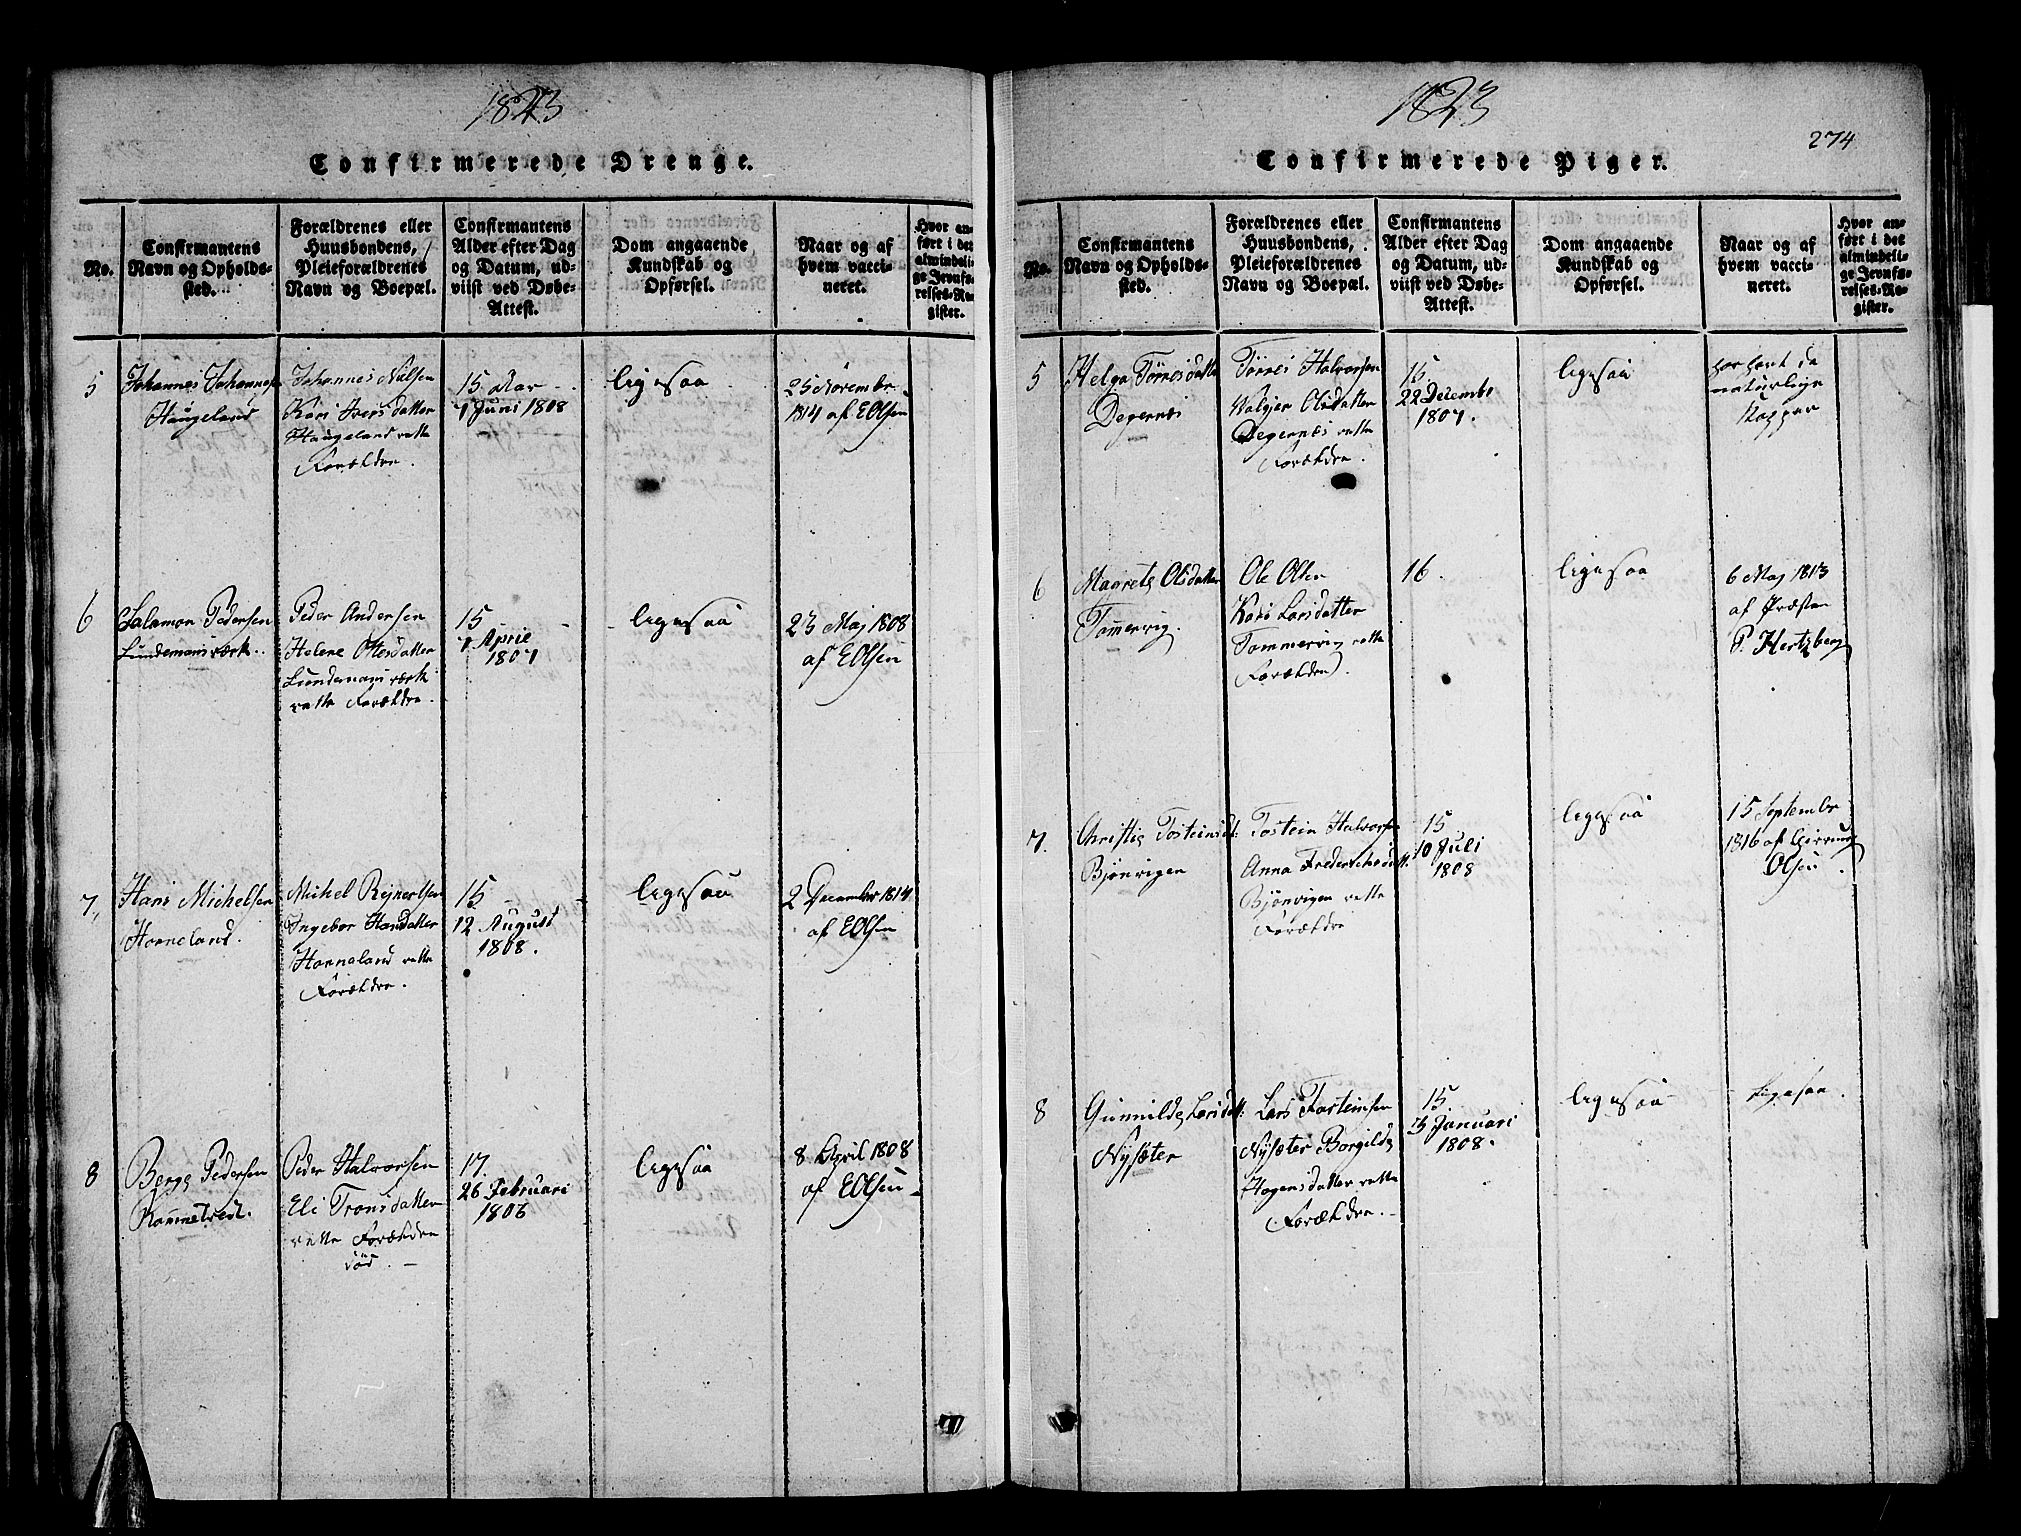 1823
Confirmerede Drenge.
No.
Confirmantens
Navn og Opholds-
sted.
Forældrenes eller
Huusbondens,
Pleieforældrenes
Navn og Boepæl.
Confirmantens
Alder efter Dag
og Datum, ud-
viist ved Døbe-
Attest.
Dom angaaende
Kundskab og
Opførsel.
Naar og af
hvem vacci-
neret.
Hvor an-
ført i det
almindeli-
ge Jevnfø-
relses-Re-
gister.
5
Johannes Johannesen
Haugeland
Johannes Nilsen
Kari Iversdatter
Haugeland rette
Forældre.
15 Aar
1 Juni 1808
ligesaa
25 Novembr
1814 af EOlsen
6
Salamon Pedersen
Lundemansværk.
Peder Andersen
Helene Olesdatter
Lundemansværk
rette Forældre.
15
7 Aprie
1807
ligesaa
23 Maj 1808
af EOlsen
7.
Hans Michelsen
Horneland.
Michel Rejnertsen
Ingebor Hansdatter
Horneland rette
Forældre.
15
12 August
1808.
ligesaa
2 December 1814
af EOlsen
8
Berge Pedersen
Rommetvedt.
Peder Halvorsen
Eli Tronsdatter
rette Forældre
død.
17.
26 Februari
1806
ligesaa
8 April 1808
af EOlsen
1823
274
Confirmerede Piger.
No.
Confirmantens
Navn og Opholds-
sted.
Forældrenes eller
Huusbondens,
Pleieforældrenes
Navn og Boepæl.
Confirmantens
Alder efter Dag
og Datum, ud-
viist ved Døbe-
Attest.
Dom angaaende
Kundskab og
Opførsel.
Naar og af
hvem vacci-
neret.
Hvor an-
ført i det
almindeli-
ge Jevnfø-
relses-Re-
gister.
5
Helga Tørresdatter
Degernæs
Tørres Halvorsen
Valgjer Olsdatter
Degernæs rette
Forældre
15.
22 Decembr
1807.
ligesaa
har havt de
naturlige
Kopper
6
Magrete Olsdatter
Tømmervig.
Ole Olsen
Kari Larsdatter
Tømmervig rette
Forældre.
16.
ligesaa
6 Maj 1813
af Præsten
P. Hertzberg
7.
Christie Tosteinsd:
Bjønvigen
Tostein Halvorsen
Anna Frederichsdatt:
Bjønvigen rette
Forældre
15
10 Juli
1808
ligesaa
15 Septembr
1816 af
Olsen
8
Gunnilde Larsdatt:
Nysæter
Lars Torsteinsen
Nysæter Borgilde
Hagensdatter rette
Forældre.
15
3 Januari
1808.
ligesaa
Ligesaa.